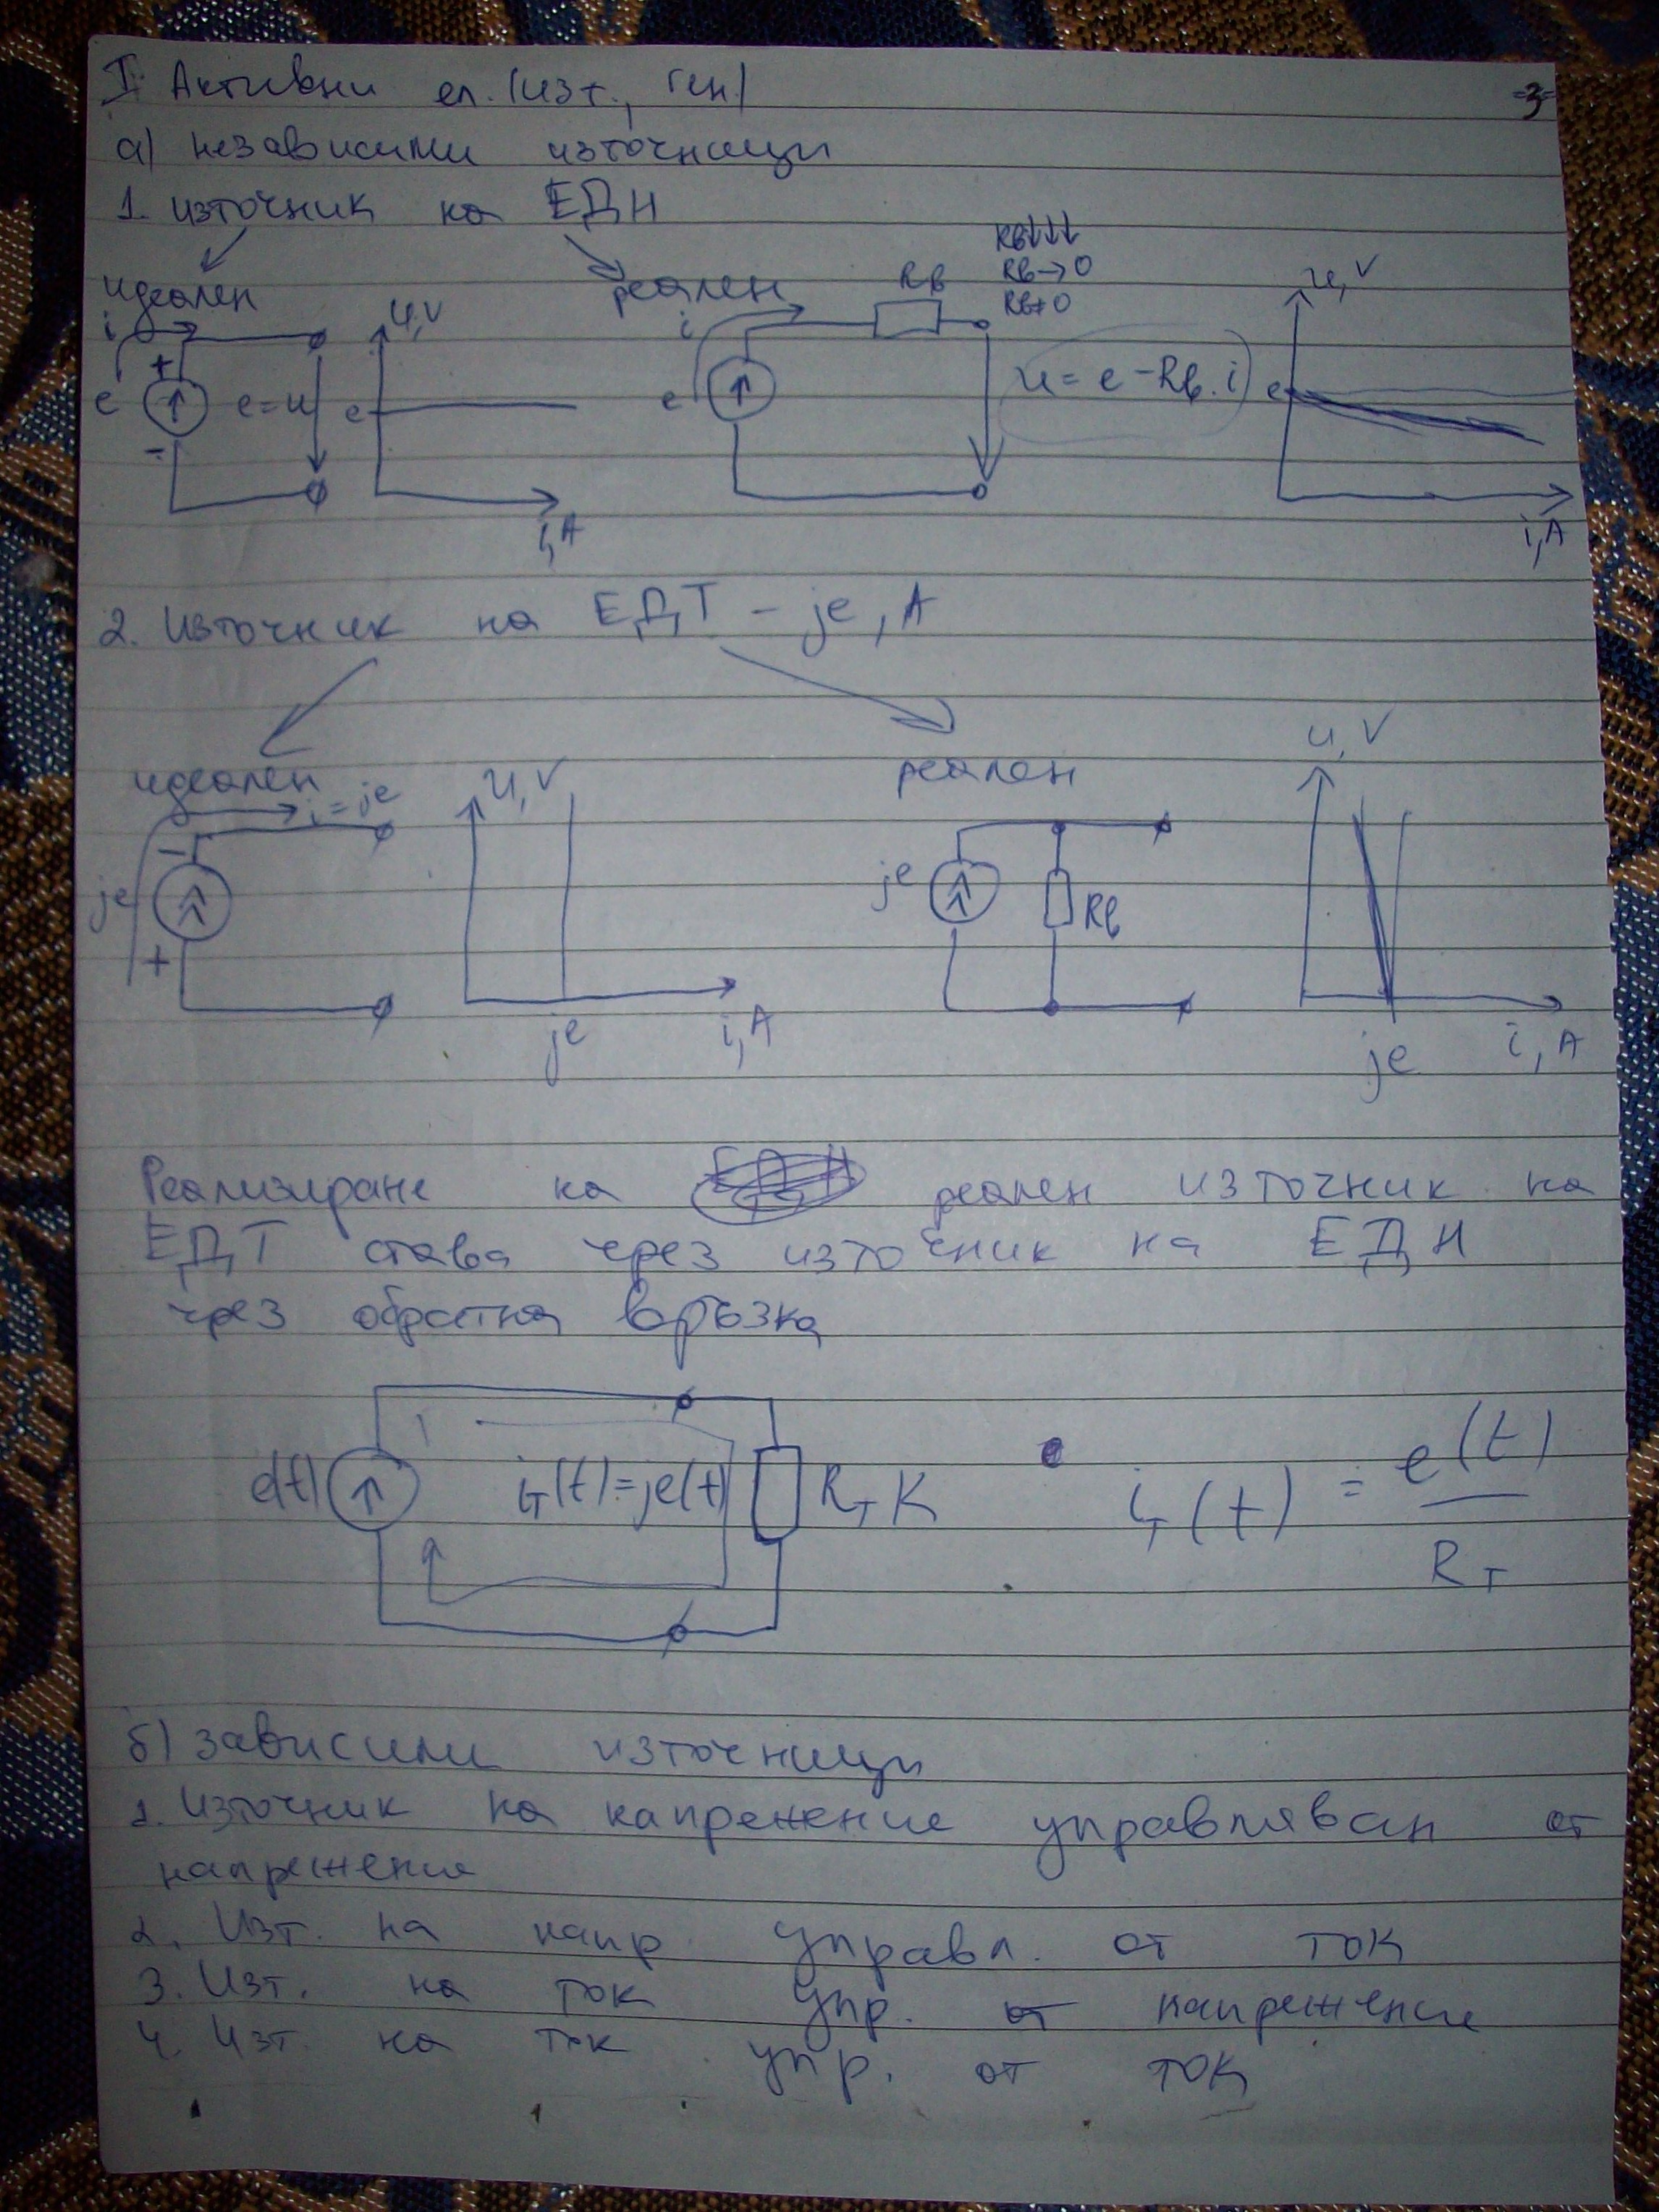 I. Активни ел. (изт., ген.)
-3-
а) независими източници
1. източник на ЕДН
идеален
реален
Rв↓↓↓
Rв→0
Rв≠0
i
+
e
-
e=u
U,V
e
i,A
i
e
Rв
u = e - Rв.i
u,V
e
i,A
2. Източник на ЕДТ - je, A
идеален
реален
i=je
-
je
+
U,V
je
i,A
je
Rв
U,V
je
i,A
Реализиране на реален източник на
ЕДТ става чрез източник на ЕДН
чрез обратна връзка
e(t)
iт(t)=je(t)
Rт K
iт(t) = e(t)/Rт
б) зависими източници
1. Източник на напрежение управляван от
напрежение
2. Изт. на напр. управл. от ток
3. Изт. на ток упр. от напрежение
4. Изт. на ток упр. от ток